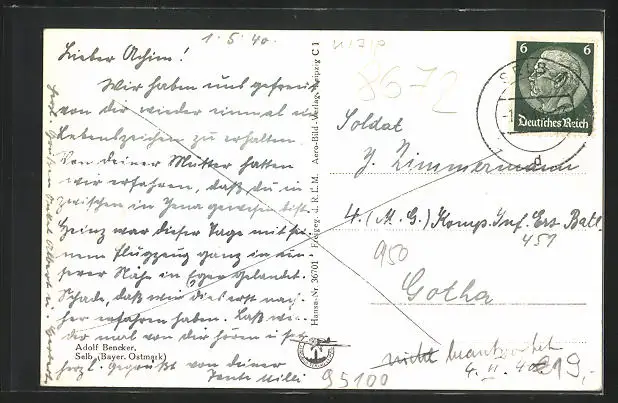 1.5.40.
Lieber Achim!
Wir haben uns gefreut
von dir wieder einmal ein
Lebenszeichen zu erhalten.
Von deiner Mutter hatten
wir erfahren, daß du in
zwischen in Jena gewesen bist.
Heinz war dieser Tage mit sei
nem Flugzeug ganz in un
serer Nähe in Eger gelandet.
Schade, daß wir dies erst nach
her erfahren haben. Laß wie
der mal von dir hören u. sei
herzl. gegrüßt von deiner
Tante Milli
Herzl. Grüßen Onkel Albert u.
Adolf Bencker,
Selb (Bayer. Ostmark)
Hansa-Nr. 36701 Freigeg. d. R.L.M. Aero-Bild-Verlag, Leipzig C 1
8672
6 6
Deutsches Reich
SELB
d
Soldat
J. Zimmermann
4. (M.G.) Komp. Inf. Ers. Batl.
451
950
Gotha
nicht beantwortet
4. 11. 40
219,-
95100